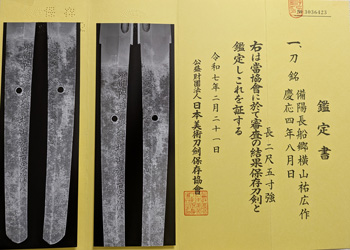 鑑定書
一、刀 銘 備陽長船郷横山祐広作
慶応四年八月日
長二尺五寸強
右は當協會に於て審査の結果保存刀剣と
鑑定しこれを証する
令和七年二月二十一日
公益財團法人日本美術刀剣保存協會